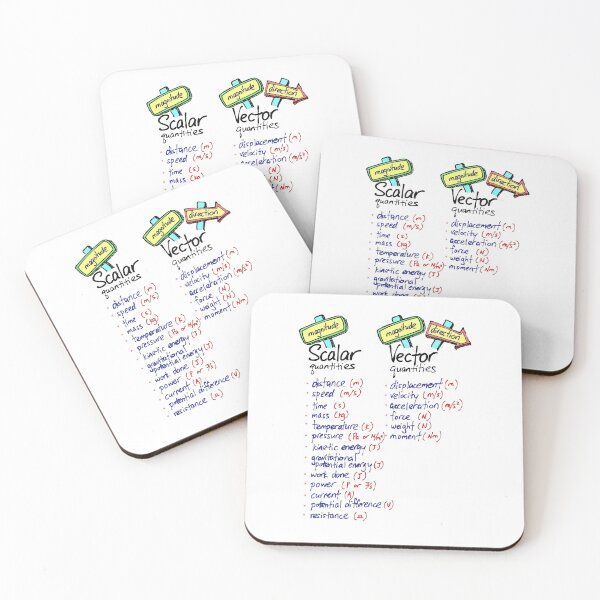 magnitude
Scalar
quantities
· distance (m)
· speed (m/s)
· time (s)
· mass (kg)
magnitude direction
Vector
quantities
· displacement (m)
· velocity (m/s)
· acceleration (m/s²)
(N)
(N)
(Nm)
magnitude
Scalar
quantities
· distance (m)
· speed (m/s)
· time (s)
· mass (kg)
· temperature (K)
· pressure (Pa or N/m²)
· kinetic energy (J)
· gravitational
potential energy (J)
· work done (J)
magnitude direction
Vector
quantities
· displacement (m)
· velocity (m/s)
· acceleration (m/s²)
· force (N)
· weight (N)
· moment (Nm)
magnitude
Scalar
quantities
· distance (m)
· speed (m/s)
· time (s)
· mass (kg)
· temperature (K)
· pressure (Pa or N/m²)
· kinetic energy (J)
· gravitational
potential energy (J)
· work done (J)
· power (P or J/s)
· current (A)
· potential difference (V)
· resistance (Ω)
magnitude direction
Vector
quantities
· displacement (m)
· velocity (m/s)
· acceleration (m/s²)
· force (N)
· weight (N)
· moment (Nm)
magnitude
Scalar
quantities
· distance (m)
· speed (m/s)
· time (s)
· mass (kg)
· temperature (K)
· pressure (Pa or N/m²)
· kinetic energy (J)
· gravitational
potential energy (J)
· work done (J)
· power (P or J/s)
· current (A)
· potential difference (V)
· resistance (Ω)
magnitude direction
Vector
quantities
· displacement (m)
· velocity (m/s)
· acceleration (m/s²)
· force (N)
· weight (N)
· moment (Nm)